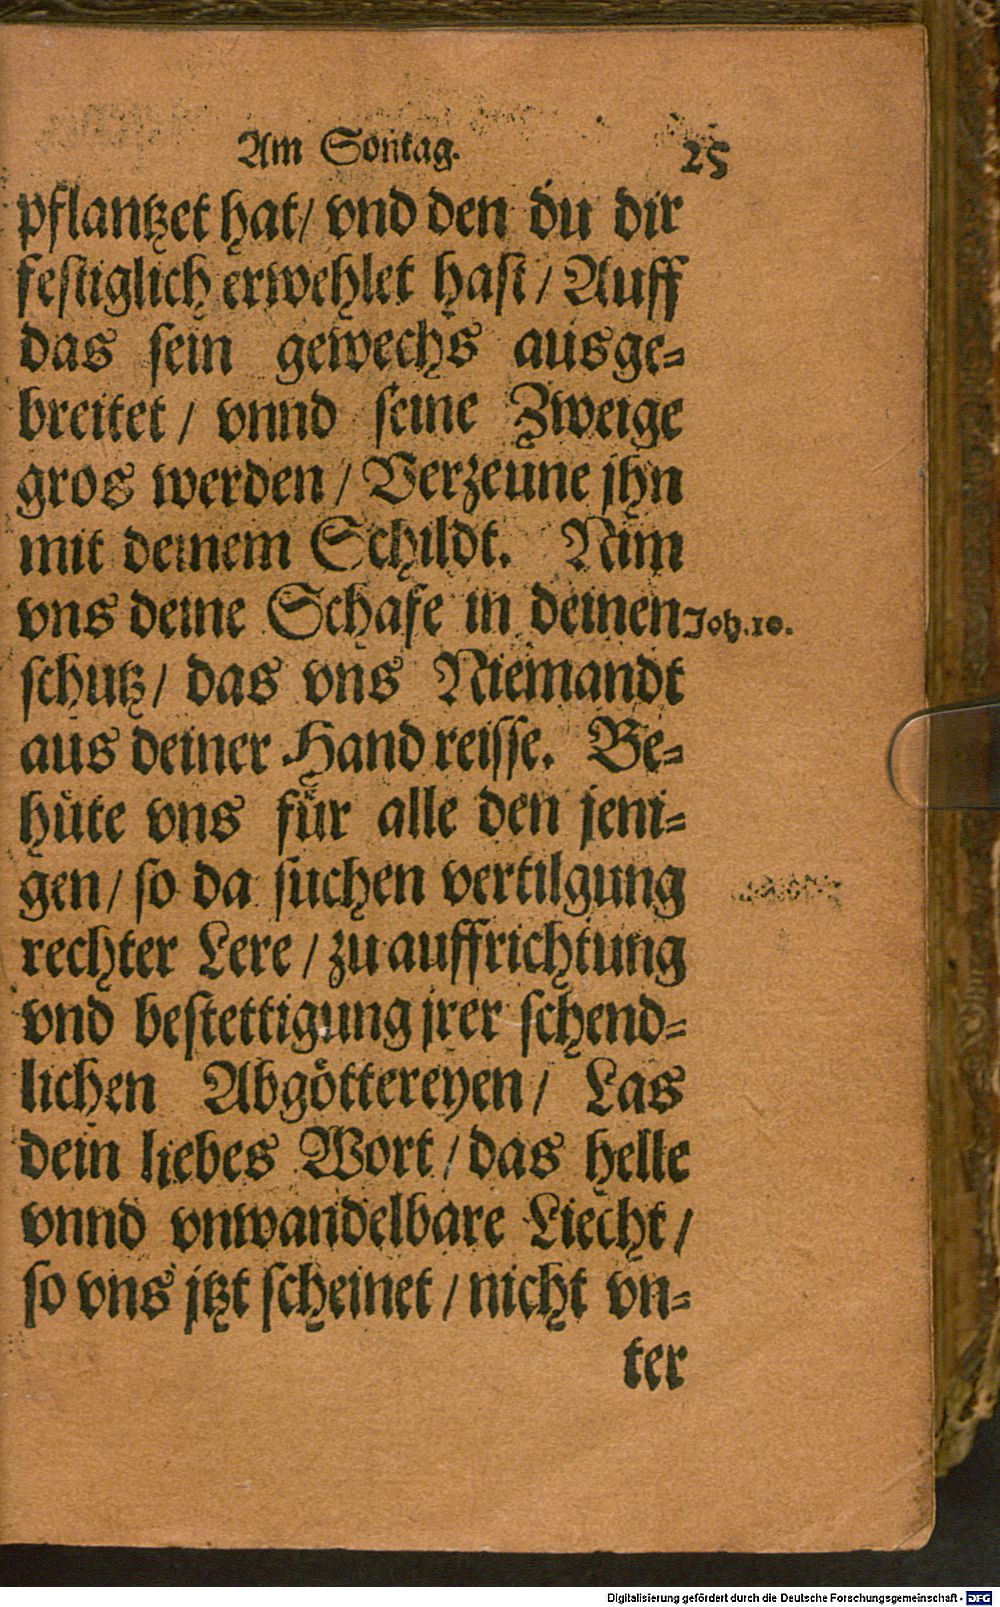 Am Sontag. 25
pflantzet hat/ vnd den du dir
festiglich erwehlet hast/ Auff
das sein gewechs ausge=
breitet/ vnnd seine Zweige
gros werden/ Verzeune jhn
mit deinem Schildt. Nim
vns deine Schafe in deinen Joh.10.
schutz/ das vns Niemandt
aus deiner Hand reisse. Be=
hüte vns für alle den jeni=
gen/ so da suchen vertilgung
rechter Lere/ zu auffrichtung
vnd bestettigung jrer schend=
lichen Abgöttereyen/ Las
dein liebes Wort/ das helle
vnnd vnwandelbare Liecht/
so vns jtzt scheinet/ nicht vn=
ter
Digitalisierung gefördert durch die Deutsche Forschungsgemeinschaft - DFG